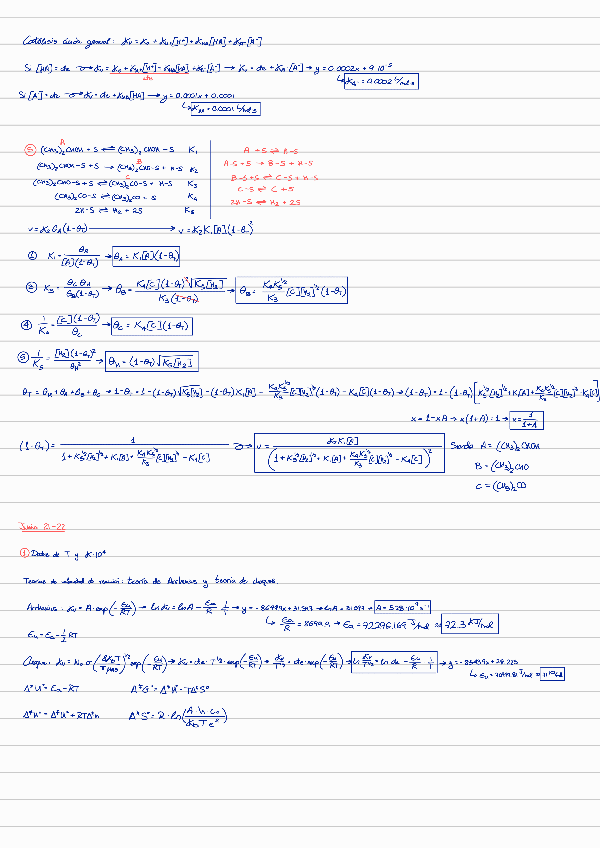 Catálisis ácida general: kv = k0 + kH+[H+] + kHA[HA] + kA-[A-]
Si [HA] = cte → kv = k0 + kH+[H+] + kHA[HA] + kA-[A-] → kv = cte + kA-[A-] → y = 0.0002x + 9·10⁻⁵
cte
↳ kA- = 0.0002 L/mol s
Si [A-] = cte → kv = cte + kHA[HA] → y = 0.0001x + 0.0001
↳ kHA = 0.0001 L/mol s
A
⑤ (CH3)2CHOH + S ⇌ (CH3)2CHOH-S K1 A + S ⇌ A-S
(CH3)2CHOH-S + S → (CH3)2CHO-S + H-S K2 A-S + S → B-S + H-S
B
(CH3)2CHO-S + S ⇌ (CH3)2CO-S + H-S K3 B-S + S ⇌ C-S + H-S
C
(CH3)2CO-S ⇌ (CH3)2CO + S K4 C-S ⇌ C + S
2H-S ⇌ H2 + 2S K5 2H-S ⇌ H2 + 2S
v = k2 θA (1-θT) → v = k2 K1[A](1-θT)²
① K1 = θA / [A](1-θT) → θA = K1[A](1-θT)
③ K3 = θC θH / θB(1-θT) → θB = K4[C](1-θT)²√K5[H2] / K3(1-θT) → θB = K4K5^1/2 / K3 [C][H2]^1/2 (1-θT)
④ 1/K4 = [C](1-θT) / θC → θC = K4[C](1-θT)
⑤ 1/K5 = [H2](1-θT)² / θH² → θH = (1-θT)√K5[H2]
θT = θH + θA + θB + θC → 1-θT = 1 - (1-θT)√K5[H2] - (1-θT)K1[A] - K4K5^1/2 / K3 [C][H2]^1/2 (1-θT) - K4[C](1-θT) → (1-θT) = 1 - (1-θT)[K5^1/2[H2]^1/2 + K1[A] + K4K5^1/2 / K3 [C][H2]^1/2 + K4[C]]
x = 1 - xA → x(1+A) = 1 → x = 1 / 1+A
(1-θT) = 1 / 1 + K5^1/2[H2]^1/2 + K1[A] + K4K5^1/2 / K3 [C][H2]^1/2 - K4[C] → v = k2K1[A] / (1 + K5^1/2[H2]^1/2 + K1[A] + K4K5^1/2 / K3 [C][H2]^1/2 - K4[C])² Siendo A = (CH3)2CHOH
B = (CH3)2CHO
C = (CH3)2CO
21-22
① Datos de T y k·10⁴
Teorías de velocidad de reacción: teoría de Arrhenius y teoría de choques.
Arrhenius: kv = A·exp(-Ea/RT) → ln kv = ln A - Ea/R 1/T → y = -8699x + 31.597 → A =
↳ Ea/R = → Ea = J/mol ≈ 72.3 kJ/mol
E0 = Ea - 1/2 RT
Choques: kv = N0 σ (8KBT/πμAB)^1/2 exp(-E0/RT) → kv = cte·T^1/2·exp(-E0/RT) → kv/T^1/2 = cte·exp(-E0/RT) → ln kv/T^1/2 = ln cte - E0/R 1/T → y =
↳ E0 =
Δ‡U° = Ea - RT Δ‡G° = Δ‡H° - TΔ‡S°
Δ‡H° = Δ‡U° + RTΔ‡n Δ‡S° = R·ln(A·h·c0 / KB T e²)